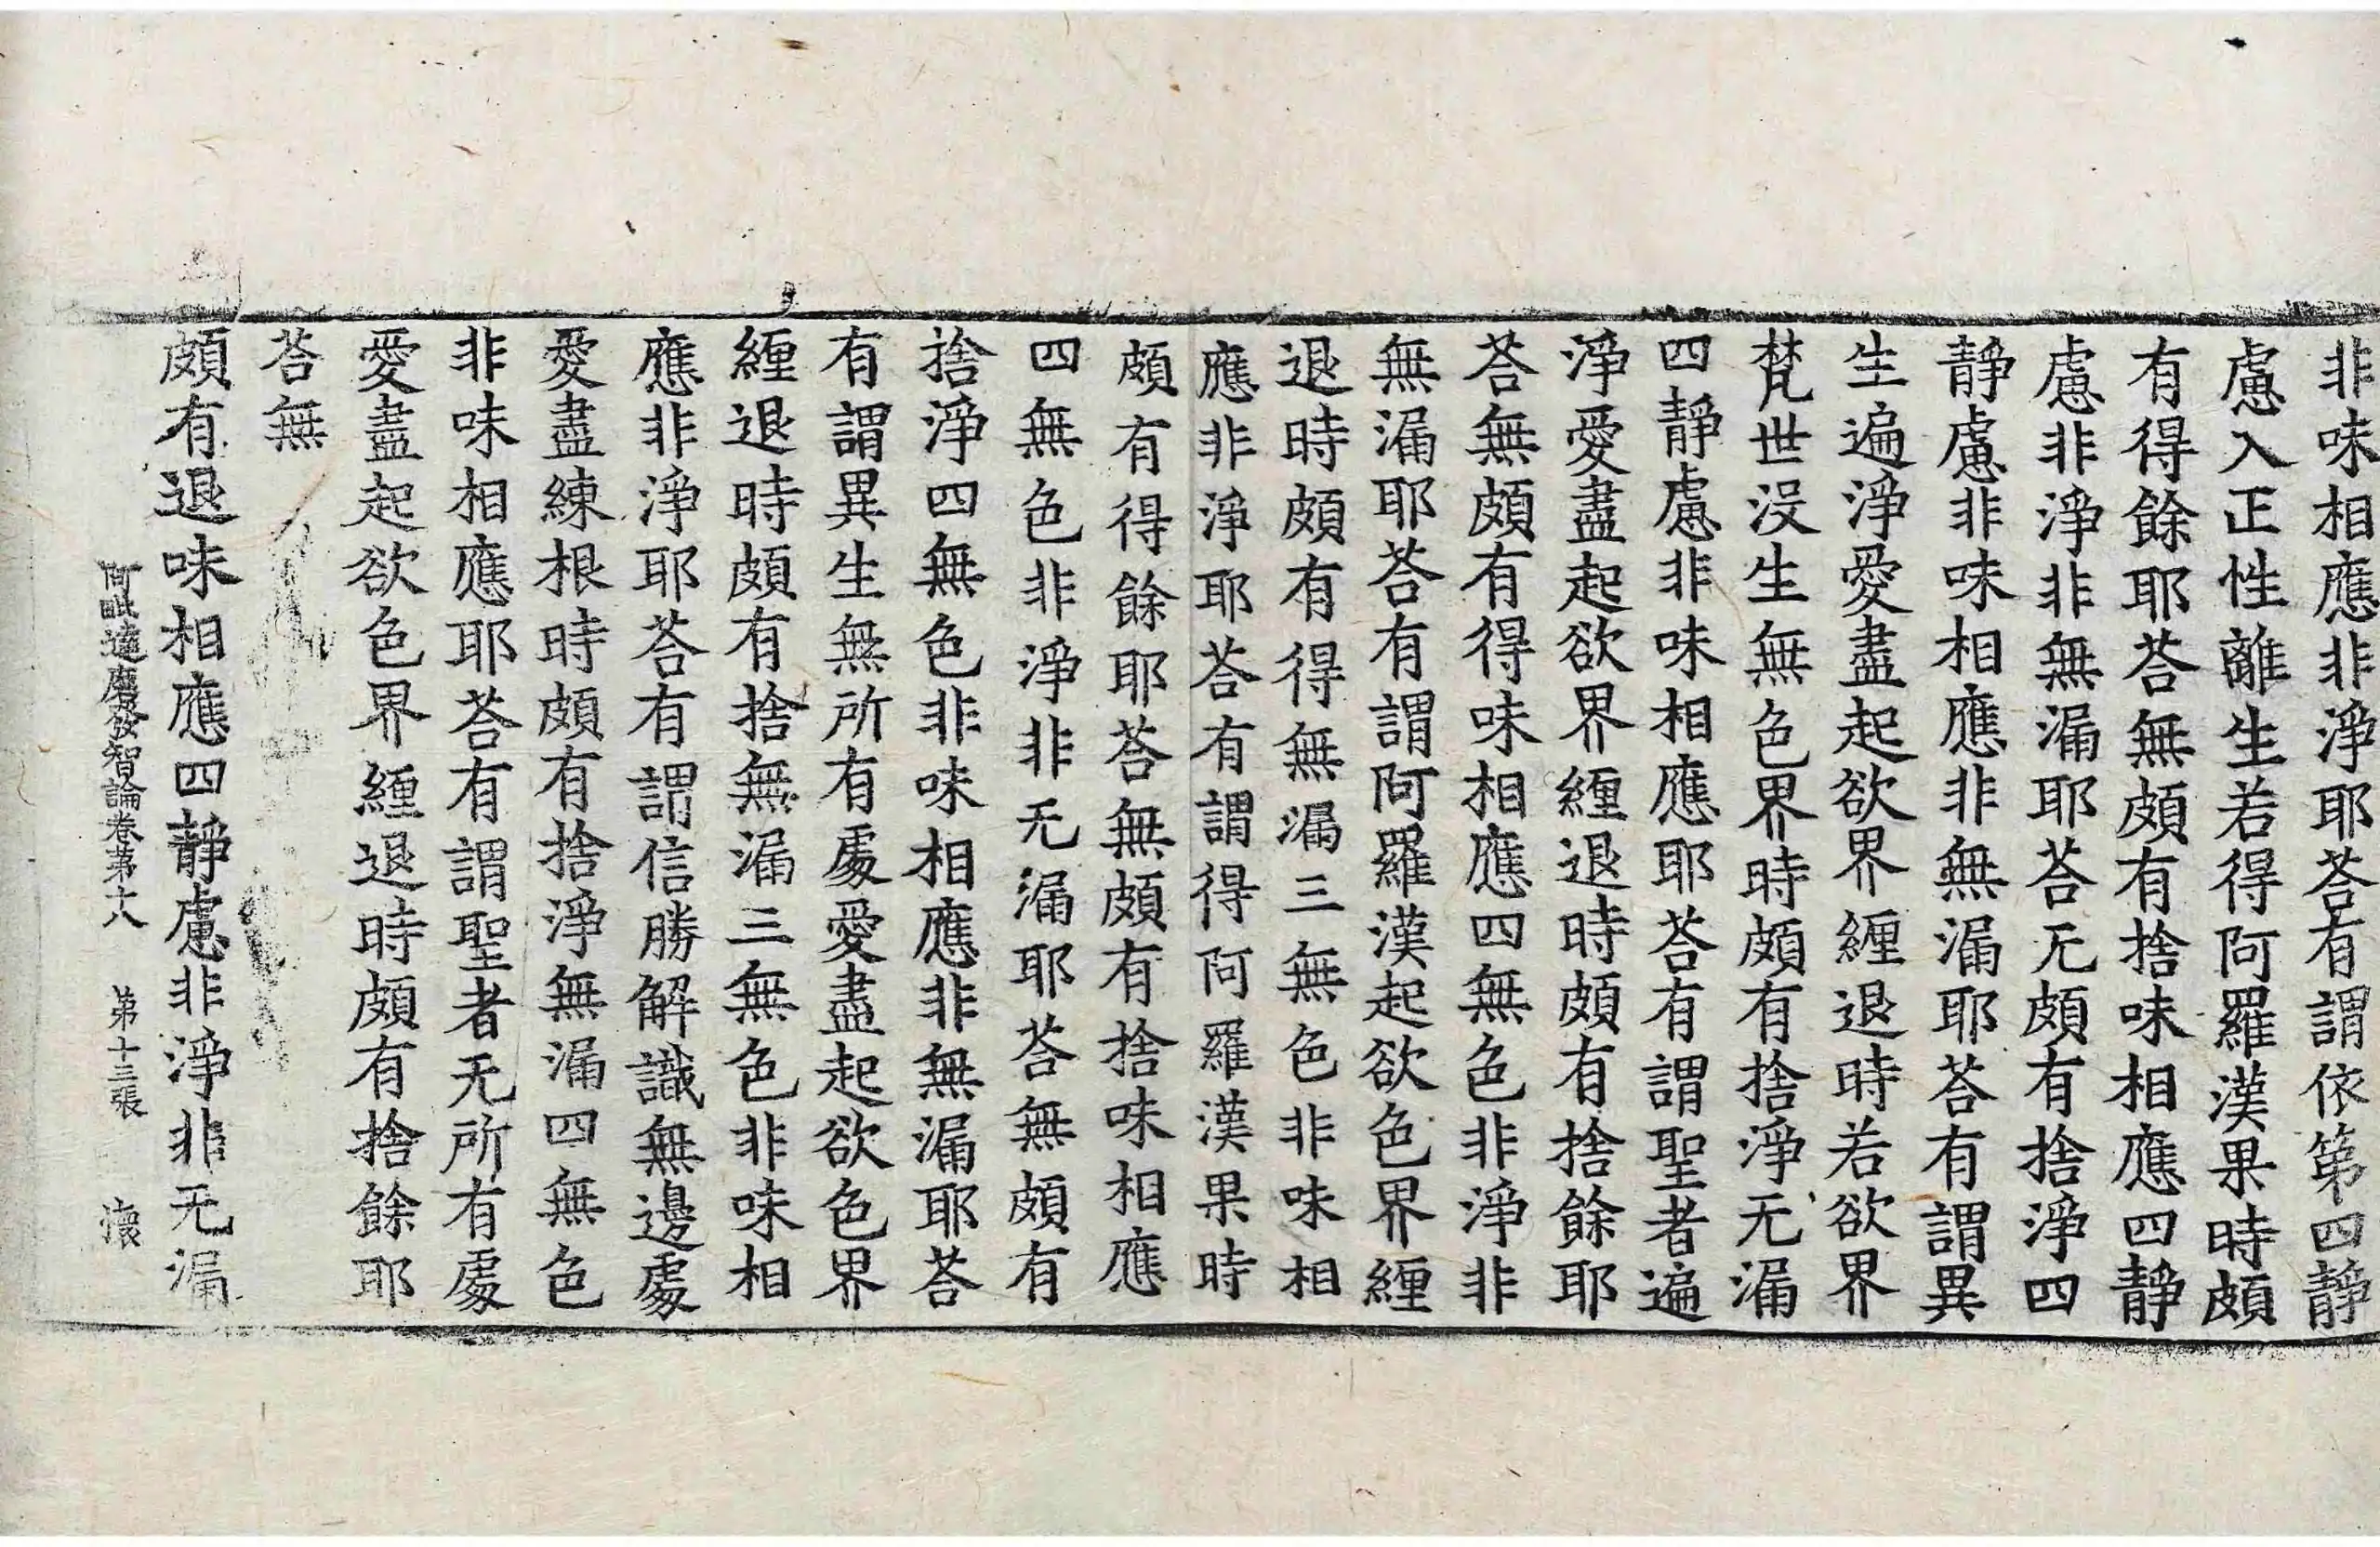 非味相應非淨耶荅有謂依第四靜
慮入正性離生若得阿羅漢果時頗
有得餘耶荅無頗有捨味相應四靜
慮非淨非無漏耶荅无頗有捨淨四
靜慮非味相應非無漏耶荅有謂異
生遍淨愛盡起欲界纏退時若欲界
梵世沒生無色界時頗有捨淨无漏
四靜慮非味相應耶荅有謂聖者遍
淨愛盡起欲界纏退時頗有捨餘耶
荅無頗有得味相應四無色非淨非
無漏耶荅有謂阿羅漢起欲色界纏
退時頗有得無漏三無色非味相
應非淨耶荅有謂得阿羅漢果時
頗有得餘耶荅無頗有捨味相應
四無色非淨非无漏耶荅無頗有
捨淨四無色非味相應非無漏耶荅
有謂異生無所有處愛盡起欲色界
纏退時頗有捨無漏三無色非味相
應非淨耶荅有謂信勝解識無邊處
愛盡練根時頗有捨淨無漏四無色
非味相應耶荅有謂聖者无所有處
愛盡起欲色界纏退時頗有捨餘耶
荅無
頗有退味相應四靜慮非淨非无漏
阿毗達磨發智論卷第十八 第十三張